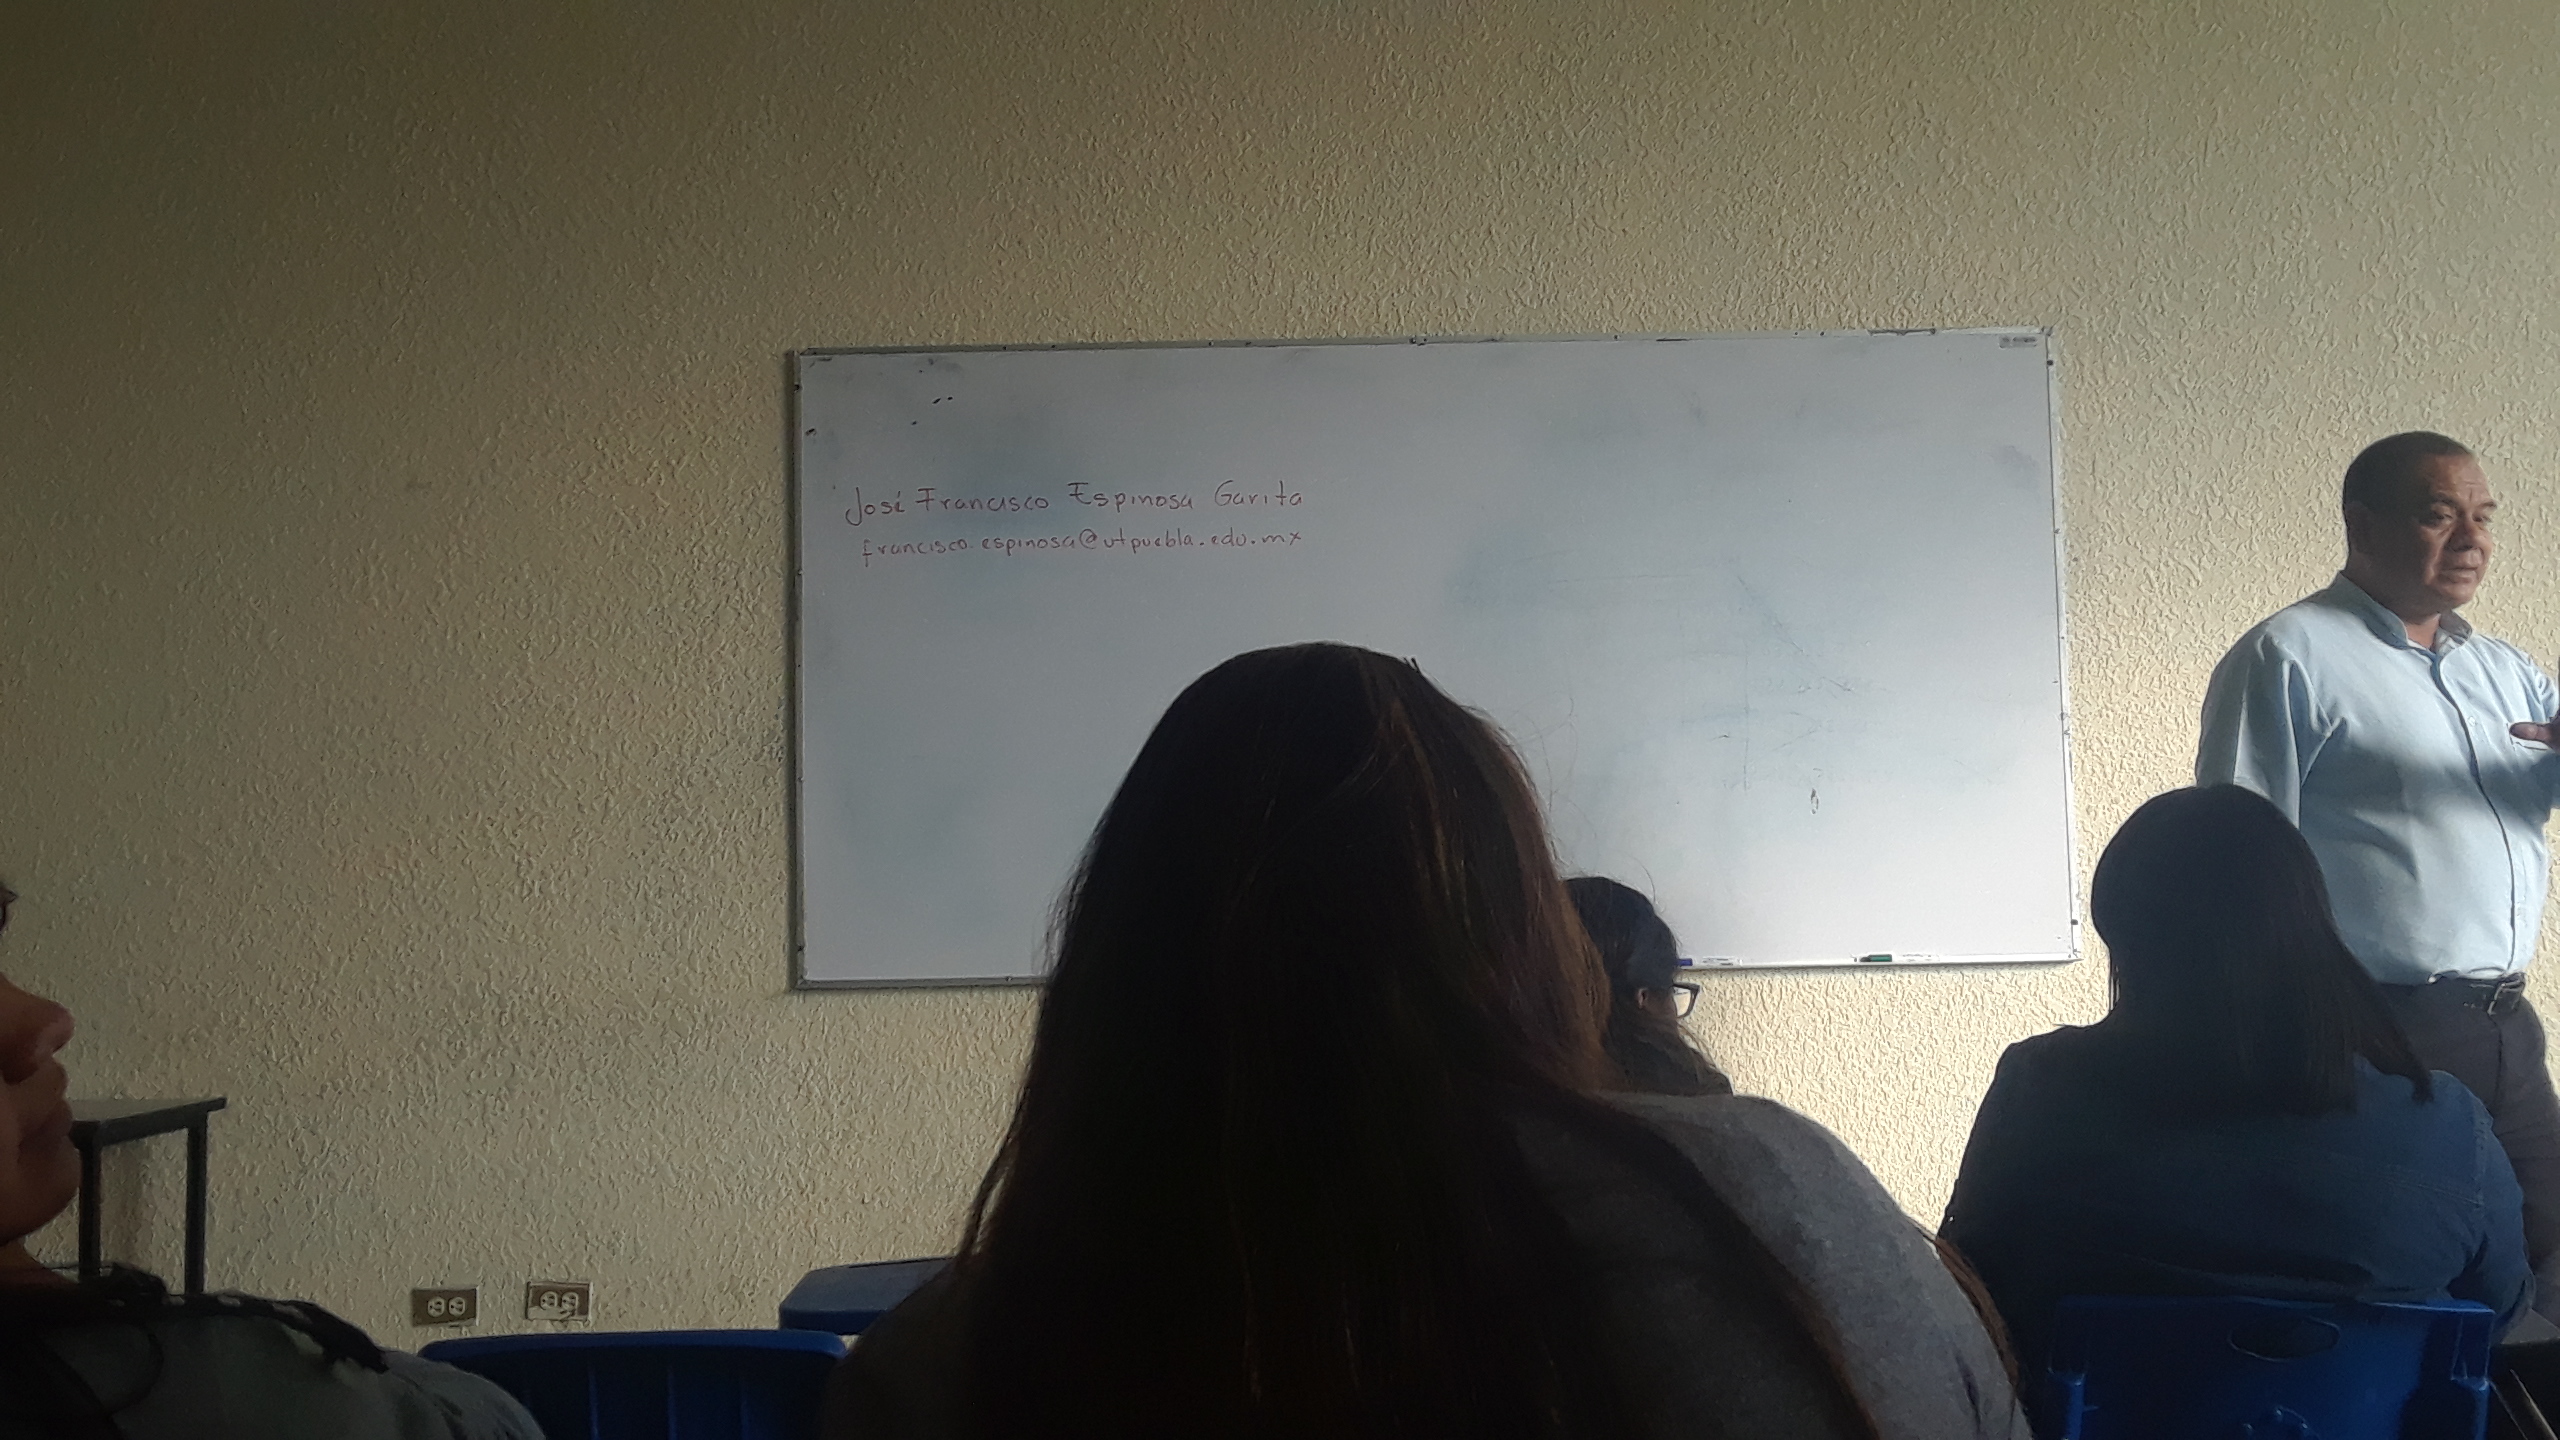 José Francisco Espinosa Garita
francisco.espinosa@utpuebla.edu.mx